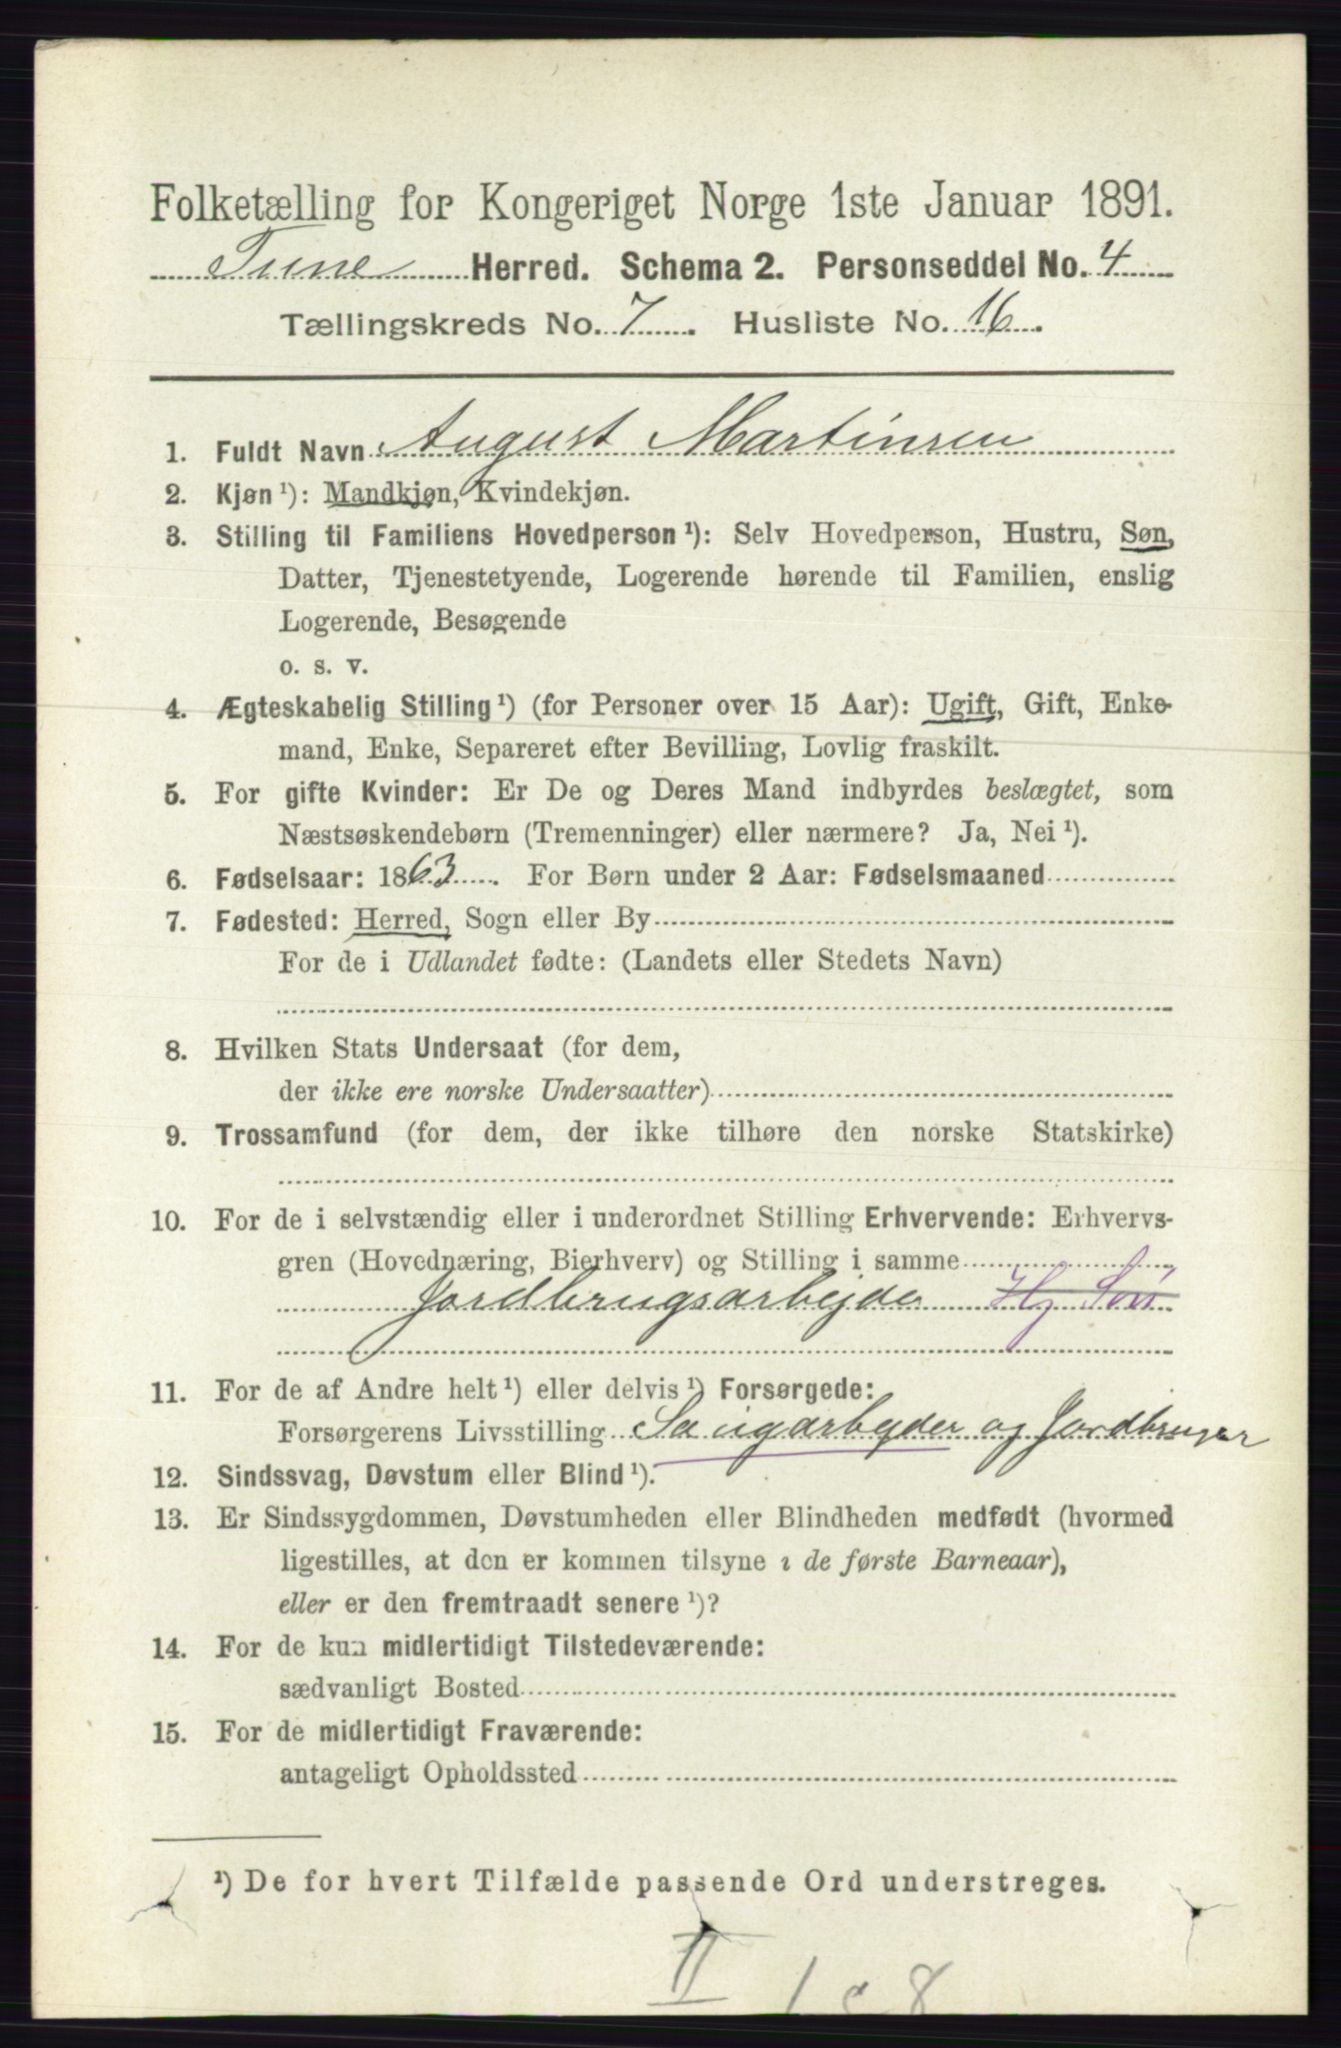 Folketælling for Kongeriget Norge 1ste Januar 1891.
Tune Herred. Schema 2. Personseddel No. 4
Tællingskreds No. 7. Husliste No. 16.
1. Fuldt Navn August Martinsen
2. Kjøn ¹): Mandkjøn, Kvindekjøn.
3. Stilling til Familiens Hovedperson ¹): Selv Hovedperson, Hustru, Søn,
Datter, Tjenestetyende, Logerende hørende til Familien, enslig
Logerende, Besøgende
o. s. v.
4. Ægteskabelig Stilling ¹) (for Personer over 15 Aar): Ugift, Gift, Enke-
mand, Enke, Separeret efter Bevilling, Lovlig fraskilt.
5. For gifte Kvinder: Er De og Deres Mand indbyrdes beslægtet, som
Næstsøskendebørn (Tremenninger) eller nærmere? Ja, Nei ¹).
6. Fødselsaar: 1863. For Børn under 2 Aar: Fødselsmaaned
7. Fødested: Herred, Sogn eller By
For de i Udlandet fødte: (Landets eller Stedets Navn)
8. Hvilken Stats Undersaat (for dem,
der ikke ere norske Undersaatter)
9. Trossamfund (for dem, der ikke tilhøre den norske Statskirke)
10. For de i selvstændig eller i underordnet Stilling Erhvervende: Erhvervs-
gren (Hovednæring, Bierhverv) og Stilling i samme
Jordbrugsarbejde Hj Søn
11. For de af Andre helt ¹) eller delvis ¹) Forsørgede:
Forsørgerens Livsstilling Saugarbeyder og Jordbruger
12. Sindssvag, Døvstum eller Blind ¹).
13. Er Sindssygdommen, Døvstumheden eller Blindheden medfødt (hvormed
ligestilles, at den er kommen tilsyne i de første Barneaar),
eller er den fremtraadt senere ¹)?
14. For de kun midlertidigt Tilstedeværende:
sædvanligt Bosted
15. For de midlertidigt Fraværende:
antageligt Opholdssted
¹) De for hvert Tilfælde passende Ord understreges.
II